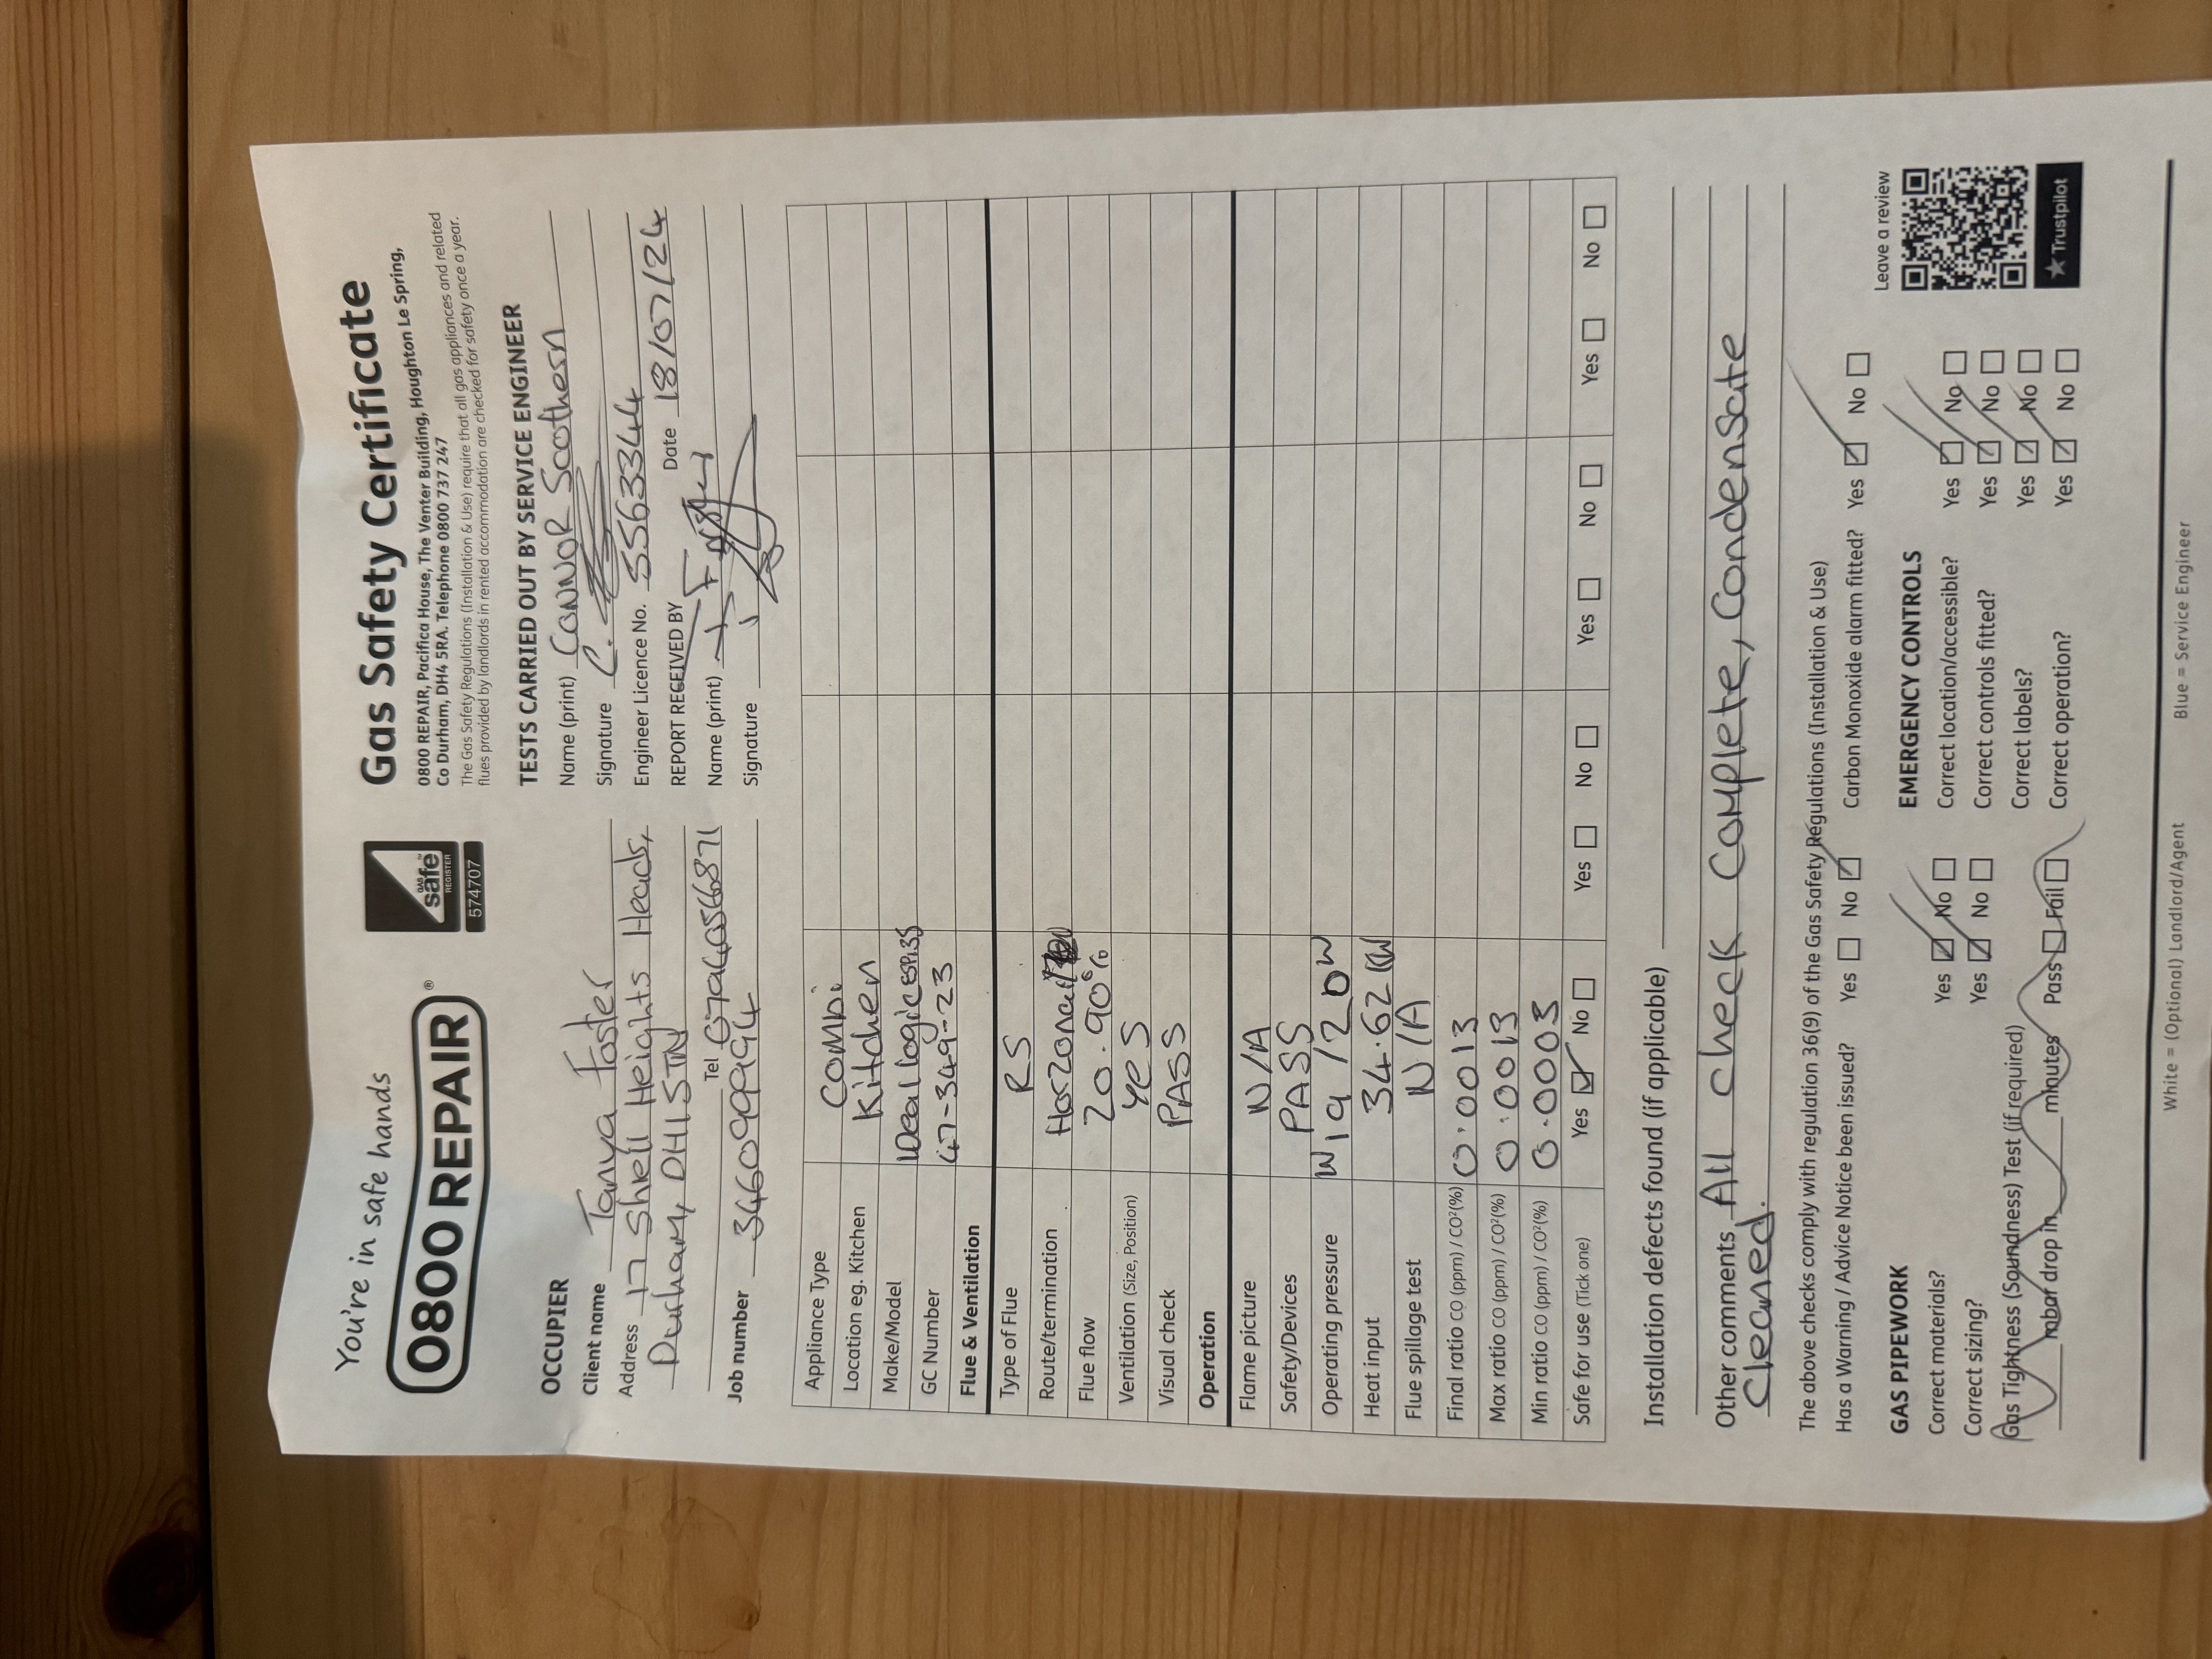 You're in safe hands
0800 REPAIR®
GAS safe REGISTER
574707
Gas Safety Certificate
0800 REPAIR, Pacifica House, The Venter Building, Houghton Le Spring,
Co Durham, DH4 5RA. Telephone 0800 737 247
The Gas Safety Regulations (Installation & Use) require that all gas appliances and related
flues provided by landlords in rented accommodation are checked for safety once a year.
OCCUPIER
Client name Tanya Foster
Address 17 Shell Heights Heads,
Durham, DH1 5TN
Tel
Job number 346099994
TESTS CARRIED OUT BY SERVICE ENGINEER
Name (print) CONNOR Scothern
Signature C.
Engineer Licence No. 5563344
REPORT RECEIVED BY Date 18/07/24
Name (print)
Signature
Appliance Type Combi
Location eg. Kitchen Kitchen
Make/Model Ideal logic ESP135
GC Number 47-349-23
Flue & Ventilation
Type of Flue RS
Route/termination
Flue flow 20.90%
Ventilation (Size, Position) Yes
Visual check PASS
Operation
Flame picture N/A
Safety/Devices PASS
Operating pressure W 19 / 20
Heat input 34.62 KW
Flue spillage test N/A
Final ratio CO (ppm) / CO²(%) 0.0013
Max ratio CO (ppm) / CO²(%) 0.0013
Min ratio CO (ppm) / CO²(%) 0.0003
Safe for use (Tick one) Yes ☑ No ☐ Yes ☐ No ☐ Yes ☐ No ☐ Yes ☐ No ☐
Installation defects found (if applicable)
Other comments All check complete, Condensate
Cleaned.
The above checks comply with regulation 36(9) of the Gas Safety Regulations (Installation & Use)
Has a Warning / Advice Notice been issued? Yes ☐ No ☑ Carbon Monoxide alarm fitted? Yes ☑ No ☐
GAS PIPEWORK
Correct materials? Yes ☑ No ☐
Correct sizing? Yes ☑ No ☐
Gas Tightness (Soundness) Test (if required)
mbar drop in minutes Pass ☐ Fail ☐
EMERGENCY CONTROLS
Correct location/accessible? Yes ☑ No ☐
Correct controls fitted? Yes ☑ No ☐
Correct labels? Yes ☑ No ☐
Correct operation? Yes ☑ No ☐
Leave a review
Trustpilot
White = (Optional) Landlord/Agent Blue = Service Engineer